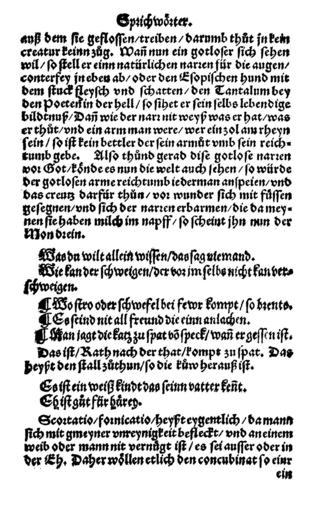 Sprichwörter.
auß dem sie geflossen/treiben/darumb thůt jn kein
creatur kein zůg. Wañ nun ein gotloser sich sehen
wil/so stell er einn natürlichen narren für die augen/
conterfey jn eben ab/oder den Esopischen hund mit
dem stuck fleysch vnd schatten/den Tantalum bey
den Poeten in der hell/so sihet er sein selbs lebendige
bildtnuß/Dañ wie der narr nit weyß was er hat/was
er thůt/vnd ein arm man were/wer ein zol am rheyn
sein/so ist kein bettler der sein armůt vmb sein reich-
tumb gebe. Also thůnd gerad dise gotlose narren
vor Got/könde es nun die welt auch sehen/so würde
der gotlosen arme reichtumb iederman anspeien/vnd
das creutz darfür thůn/vor wunder sich mit füssen
gesegnen/vnd sich der narren erbarmen/die da mey-
nen sie haben milch im napff/so scheint jhn nun der
Mon drein.
Was du wilt allein wissen/das sag niemand.
Wie kan der schweigen/der vor im selbs nicht kan ver-
schweigen.
¶ Wo stro oder schwefel bei fewr kompt/so brents.
¶ Es seind nit all freund die einn anlachen.
¶ Man jagt die katz zu spat võ speck/wañ er gessen ist.
Das ist/Rath nach der that/kompt zu spat. Das
heyßt den stall zůthun/so die küw herauß ist.
Es ist ein weiß kindt das seinn vatter keñt.
Eh ist gůt für hůrey.
Scortatio/fornicatio/heyßt eygentlich/da mann
sich mit gmeyner vnreynigkeit befleckt/vnd an einem
weib oder mann nit vernügt ist/es sei ausser oder in
der Eh. Daher wöllen etlich den concubinat so einr
ein